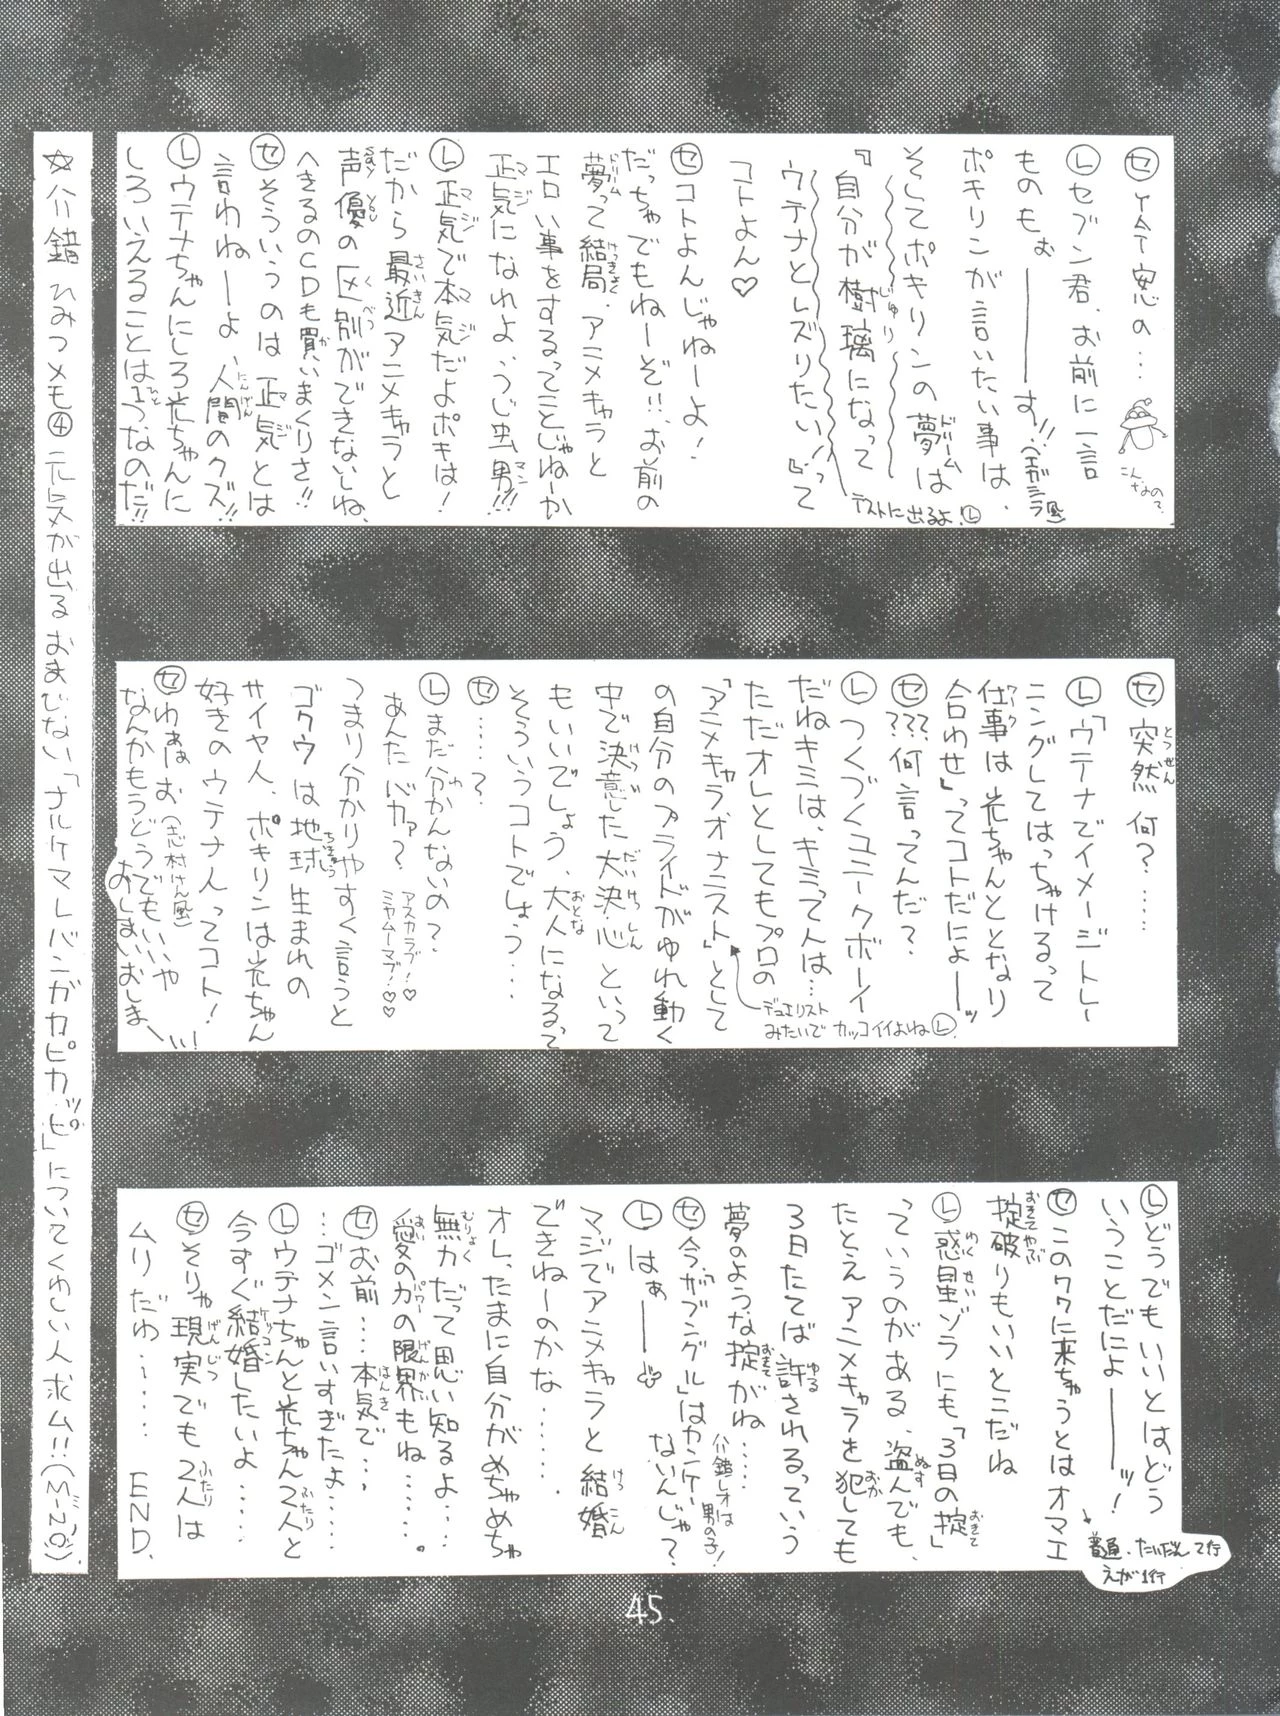 ㋝ YAT安心の…
こんなので。
Ⓛセブン君、お前に一言
ものもぉ――――す!!(エガシラ風)
ポキリンが言いたい事は、
そしてポキリンの夢は
『自分が樹璃になって
ウテナとレズりたい!』って
テストに出るよ!Ⓛ
コトよん♡
㋝コトよんじゃねーよ!
だっちゃでもねーぞ!!、お前の
夢って結局、アニメキャラと
エロい事をするってことじゃねーか
正気になれよ、うじ虫男!!!
Ⓛ正気で本気だよポキは!
だから最近アニメキャラと
声優の区別ができないしね、
へきるのCDも買いまくりさ!!
㋝そういうのは正気とは
言わねーよ、人間のクズ!!
Ⓛウテナちゃんにしろ光ちゃんに
しろいえることは1つなのだ!!
㋝突然何?……
Ⓛ「ウテナでイメージトレー
ニングしてはっちゃけるって
仕事は光ちゃんととなり
合わせ」ってコトだによ――ッ
㋝???何言ってんだ?
Ⓛつくづくユニークボーイ
だねキミは、キミって人は…
ただオレとしてもプロの
「アニメキャラオナニスト」として
デュエリスト
みたいでカッコイイよねⓁ
の自分のプライドがゆれ動く
中で決意した大決心といって
もいいでしょう、大人になるって
そういうコトでしょう…
㋝……?
Ⓛまだ分かんないの?
あんたバカァ?
アスカラブ!♡
ミヤムーマブ!♡♡
つまり分かりやすく言うと
ゴクウは地球生まれの
サイヤ人、ポキリンは光ちゃん
好きのウテナ人ってコト!
㋝わぁぁお(志村けん風)
なんかもうどうでもいいや
おしまいおしまーい!
Ⓛどうでもいいとはどう
いうことだによ――――ッ!
㋝このワクに来ちゃうとはオマエ
普通、たいだんって行
えが1行
掟破りもいいとこだね
Ⓛ惑星ゾラにも「3日の掟」
っていうのがある、盗んでも、
たとえアニメキャラを犯しても
3日たてば許されるっていう
夢のような掟がね……
㋝今「ザブングル」はカンケイ
ないんじゃ?
介錯レオは
男の子!
Ⓛはぁ――
マジでアニメキャラと結婚
できねーのかな……
オレ、たまに自分がめちゃめちゃ
無力だって思い知るよ……
愛の力の限界もね……。
㋝お前…本気で…
…ゴメン言いすぎたよ…
Ⓛウテナちゃんと光ちゃん2人と
今すぐ結婚したいよ……
㋝そりゃ現実でも2人は
ムリだわ……　END.
☆介錯ひみつメモ④ 元気が出るおまじない「ナルケマレバンガカピカッピ」についてくわしい人求ム!!(M-NO)
45.